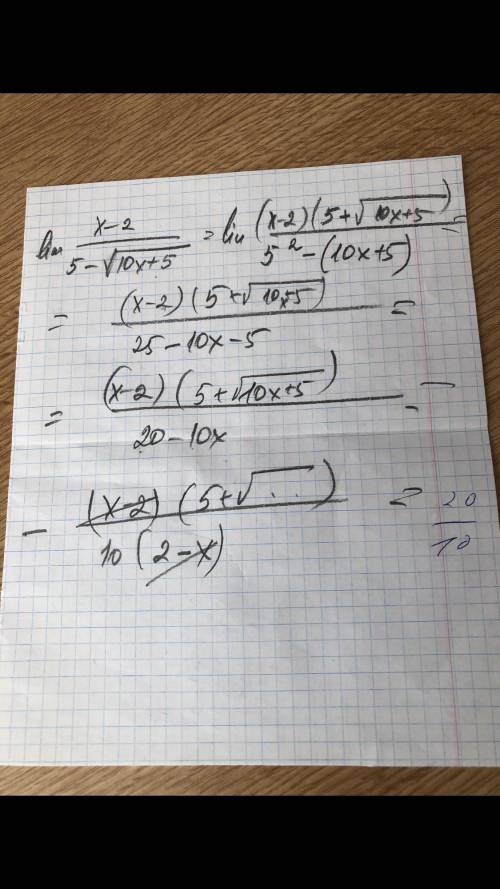 lim (x-2)/(5-√(10x+5)) = lim ((x-2)(5+√(10x+5)))/(5²-(10x+5)) =
= ((x-2)(5+√(10x+5)))/(25-10x-5) =
= ((x-2)(5+√(10x+5)))/(20-10x) =
- ((x-2)(5+√(..)))/(10(2-x)) = 20/10